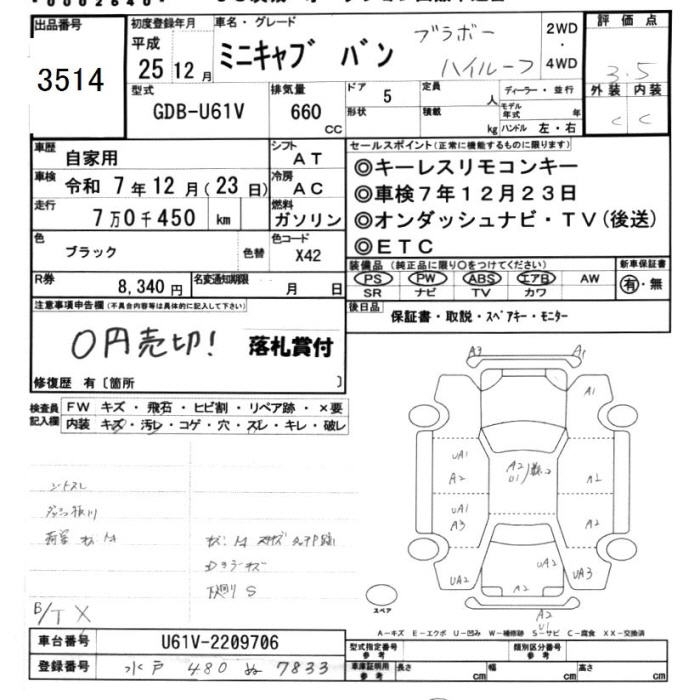 出品番号
3514
初度登録年月
平成
25 12 月
車名・グレード
ミニキャブ バン
ブラボー
ハイルーフ
2WD
・
4WD
評価点
3.5
外装 内装
C C
型式
GDB-U61V
排気量
660
CC
ドア
5
形状
定員
人
積載
kg
ディーラー・並行
モデル年式 年
ハンドル 左・右
車歴
自家用
シフト
AT
車検
令和 7 年 12 月(23 日)
冷房
AC
走行
7 万 0 千 450 km
燃料
ガソリン
色
ブラック
色替
色コード
X42
R券
8,340 円
名変通知期限
月 日
セールスポイント(正常に機能するものに限ります)
◎キーレスリモコンキー
◎車検7年12月23日
◎オンダッシュナビ・TV(後送)
◎ETC
装備品(純正品に限り○をつけてください)
PS PW ABS エアB AW
SR ナビ TV カワ
新車保証書
有・無
後日品
保証書・取説・スペアキー・モニター
注意事項申告欄(不具合内容等は具体的に記入して下さい)
0円売切!
落札賞付
修復歴 有〔箇所 〕
検査員記入欄
FW キズ・飛石・ヒビ割・リペア跡・×要
内装 キズ・汚レ・コゲ・穴・スレ・キレ・破レ
シートスレ
下廻り S
B/T X
A3
A1
A1
UA1
A2
A2
U1
A1
UA1
A3
A2
UA2
UA2
UA3
A2
A2
U1
スペア
A-キズ E-エクボ U-凹み W-補修跡 S-サビ C-腐食 XX-交換済
車台番号
U61V-2209706
登録番号
水戸 480 ぬ 7833
型式指定番号
参考
類別区分番号
参考
車庫証明用
参考
長さ cm
幅 cm
高さ cm